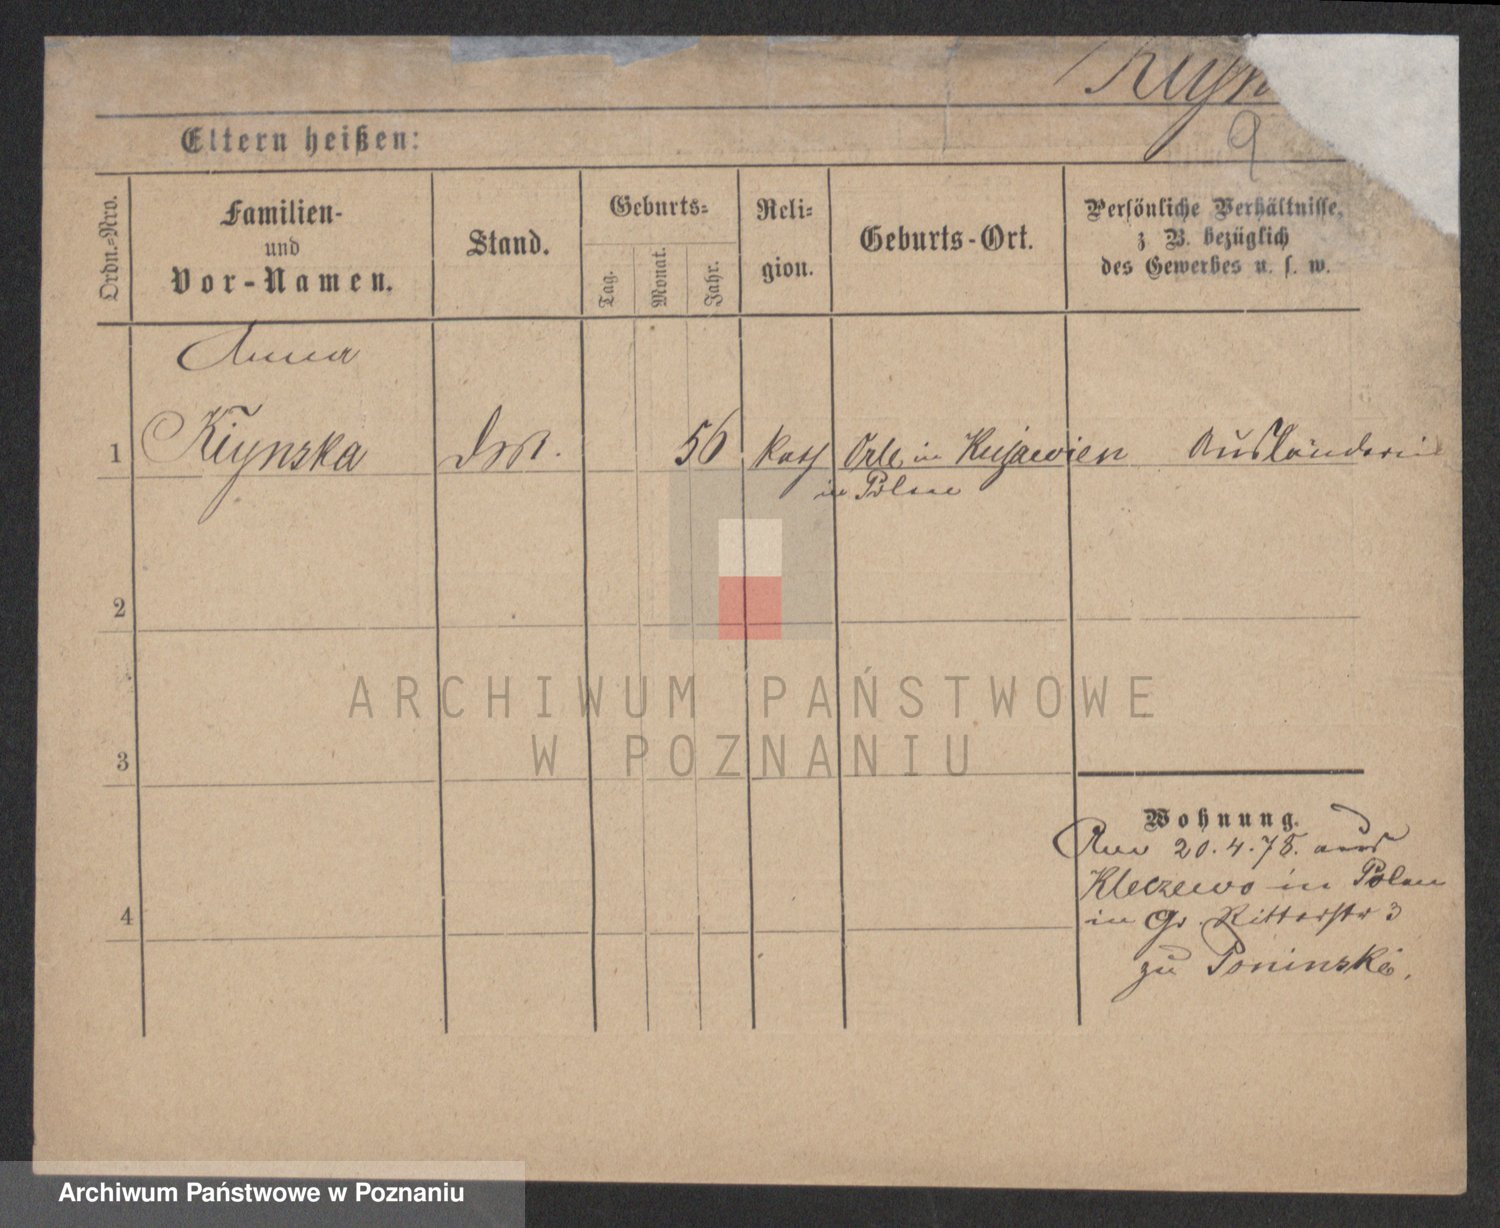 9
Eltern heißen:
Ordn.=Nro.
Familien-
und
Vor-Namen.
Stand.
Geburts=
Tag.
Monat.
Jahr.
Reli=
gion.
Geburts-Ort.
Persönliche Verhältnisse,
z B. bezüglich
des Gewerbes u. s. w.
Anna
1 Kiynska 56 kath Orle in Kujawien Ausländerin
in Polen
2
3
4
ARCHIWUM PAŃSTWOWE
W POZNANIU
Wohnung.
20.4.78. aus
Kleczewo in Polen
in Gr. Ritterstr 3
zu Poninski.
Archiwum Państwowe w Poznaniu